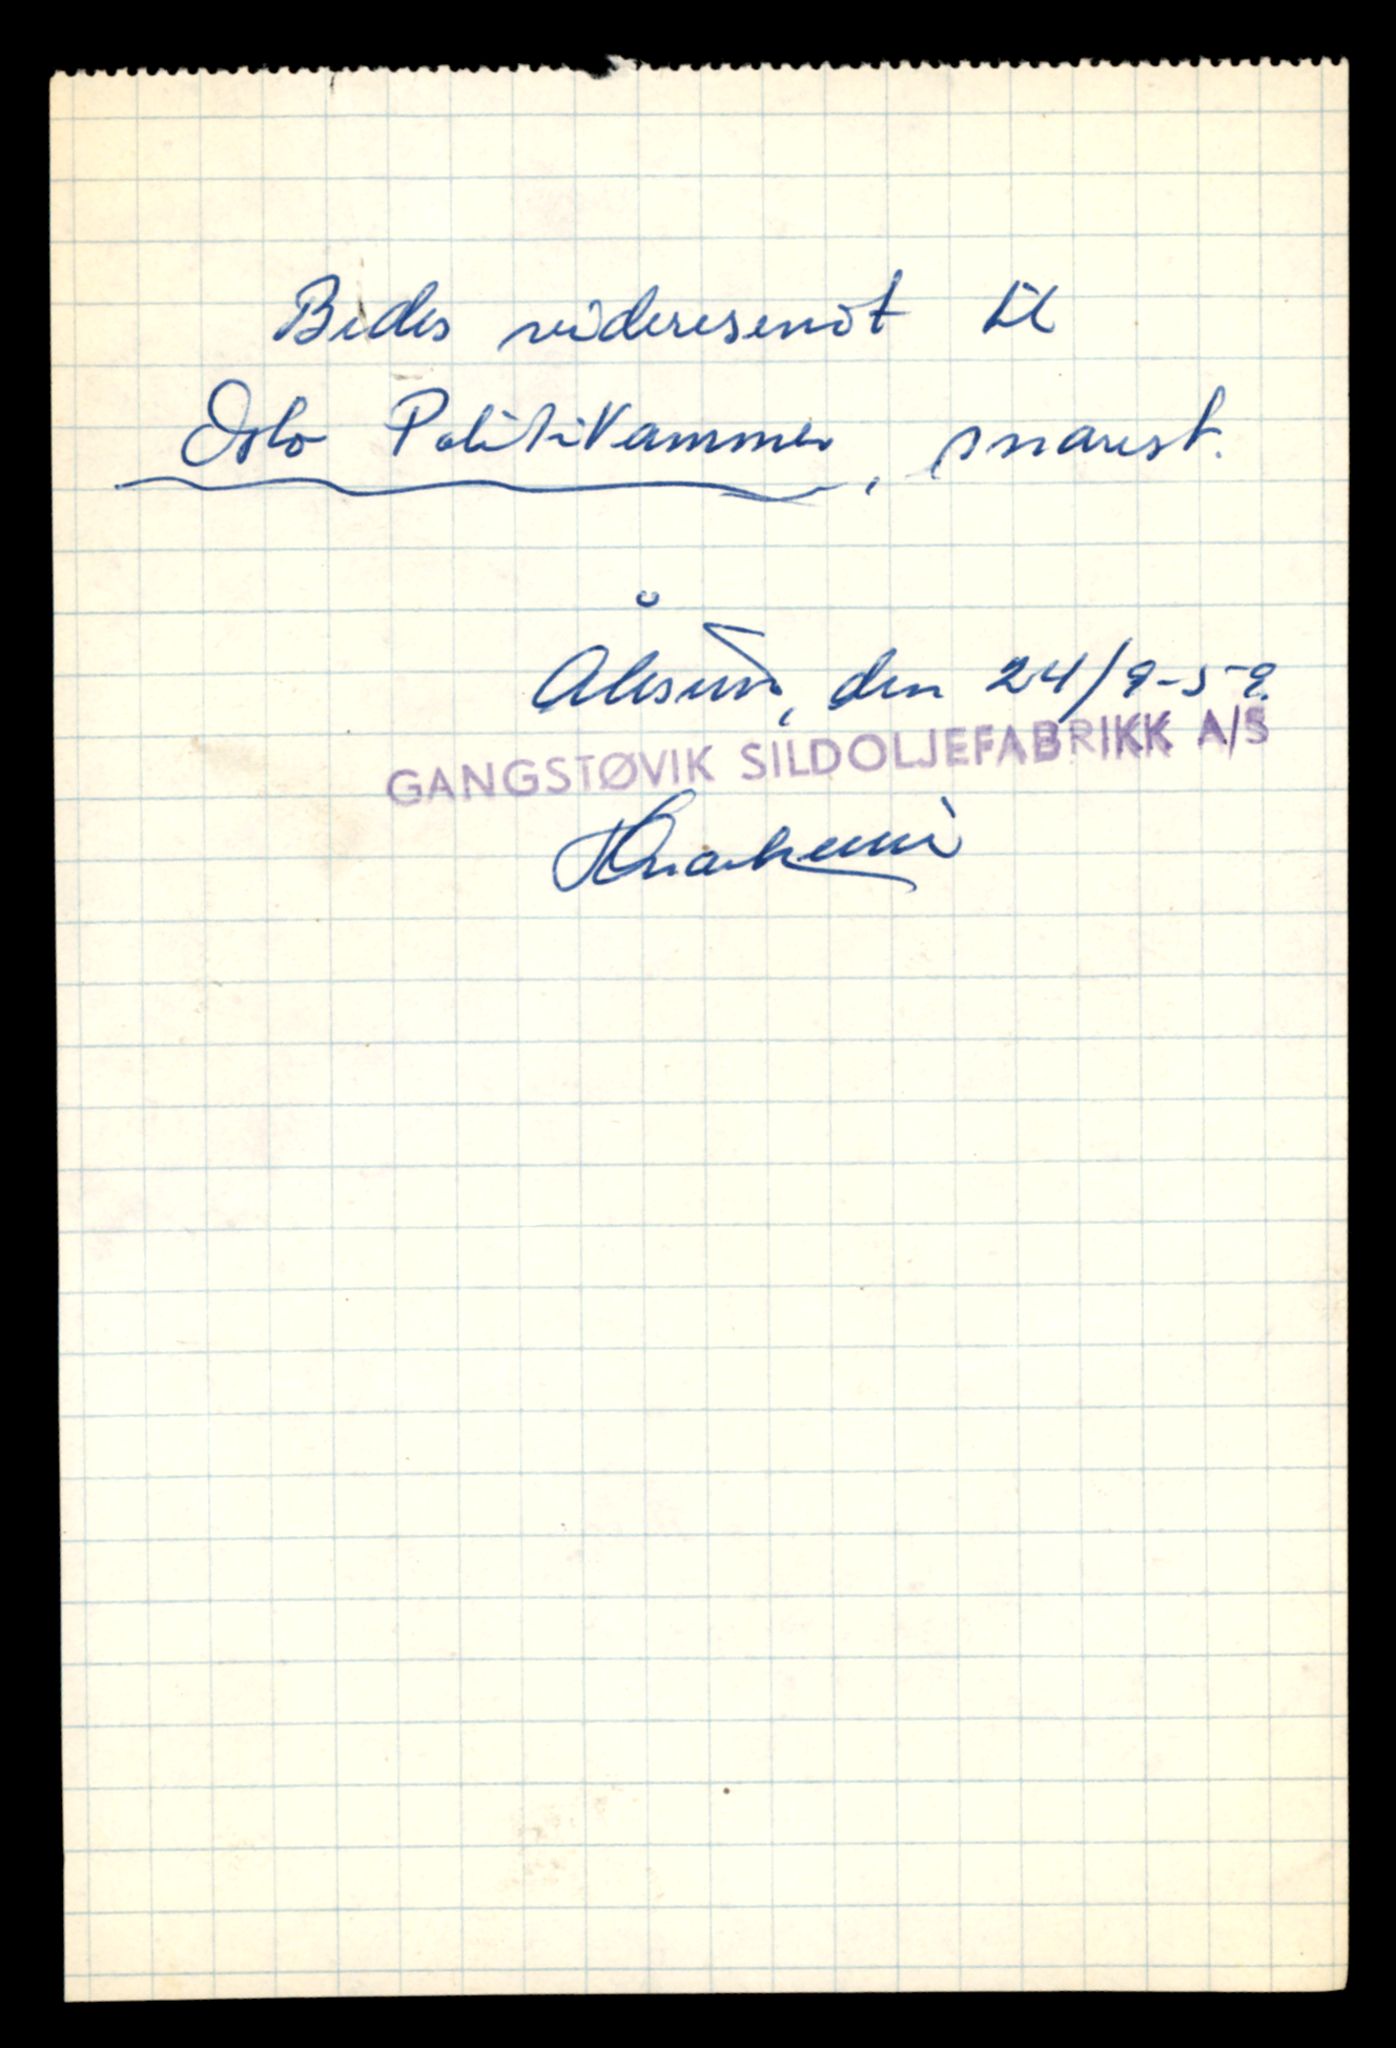 Bedes videresendt til
Oslo Politikammer, snarest.
Ålesund, den 24/9-59.
GANGSTØVIK SILDOLJEFABRIKK A/S